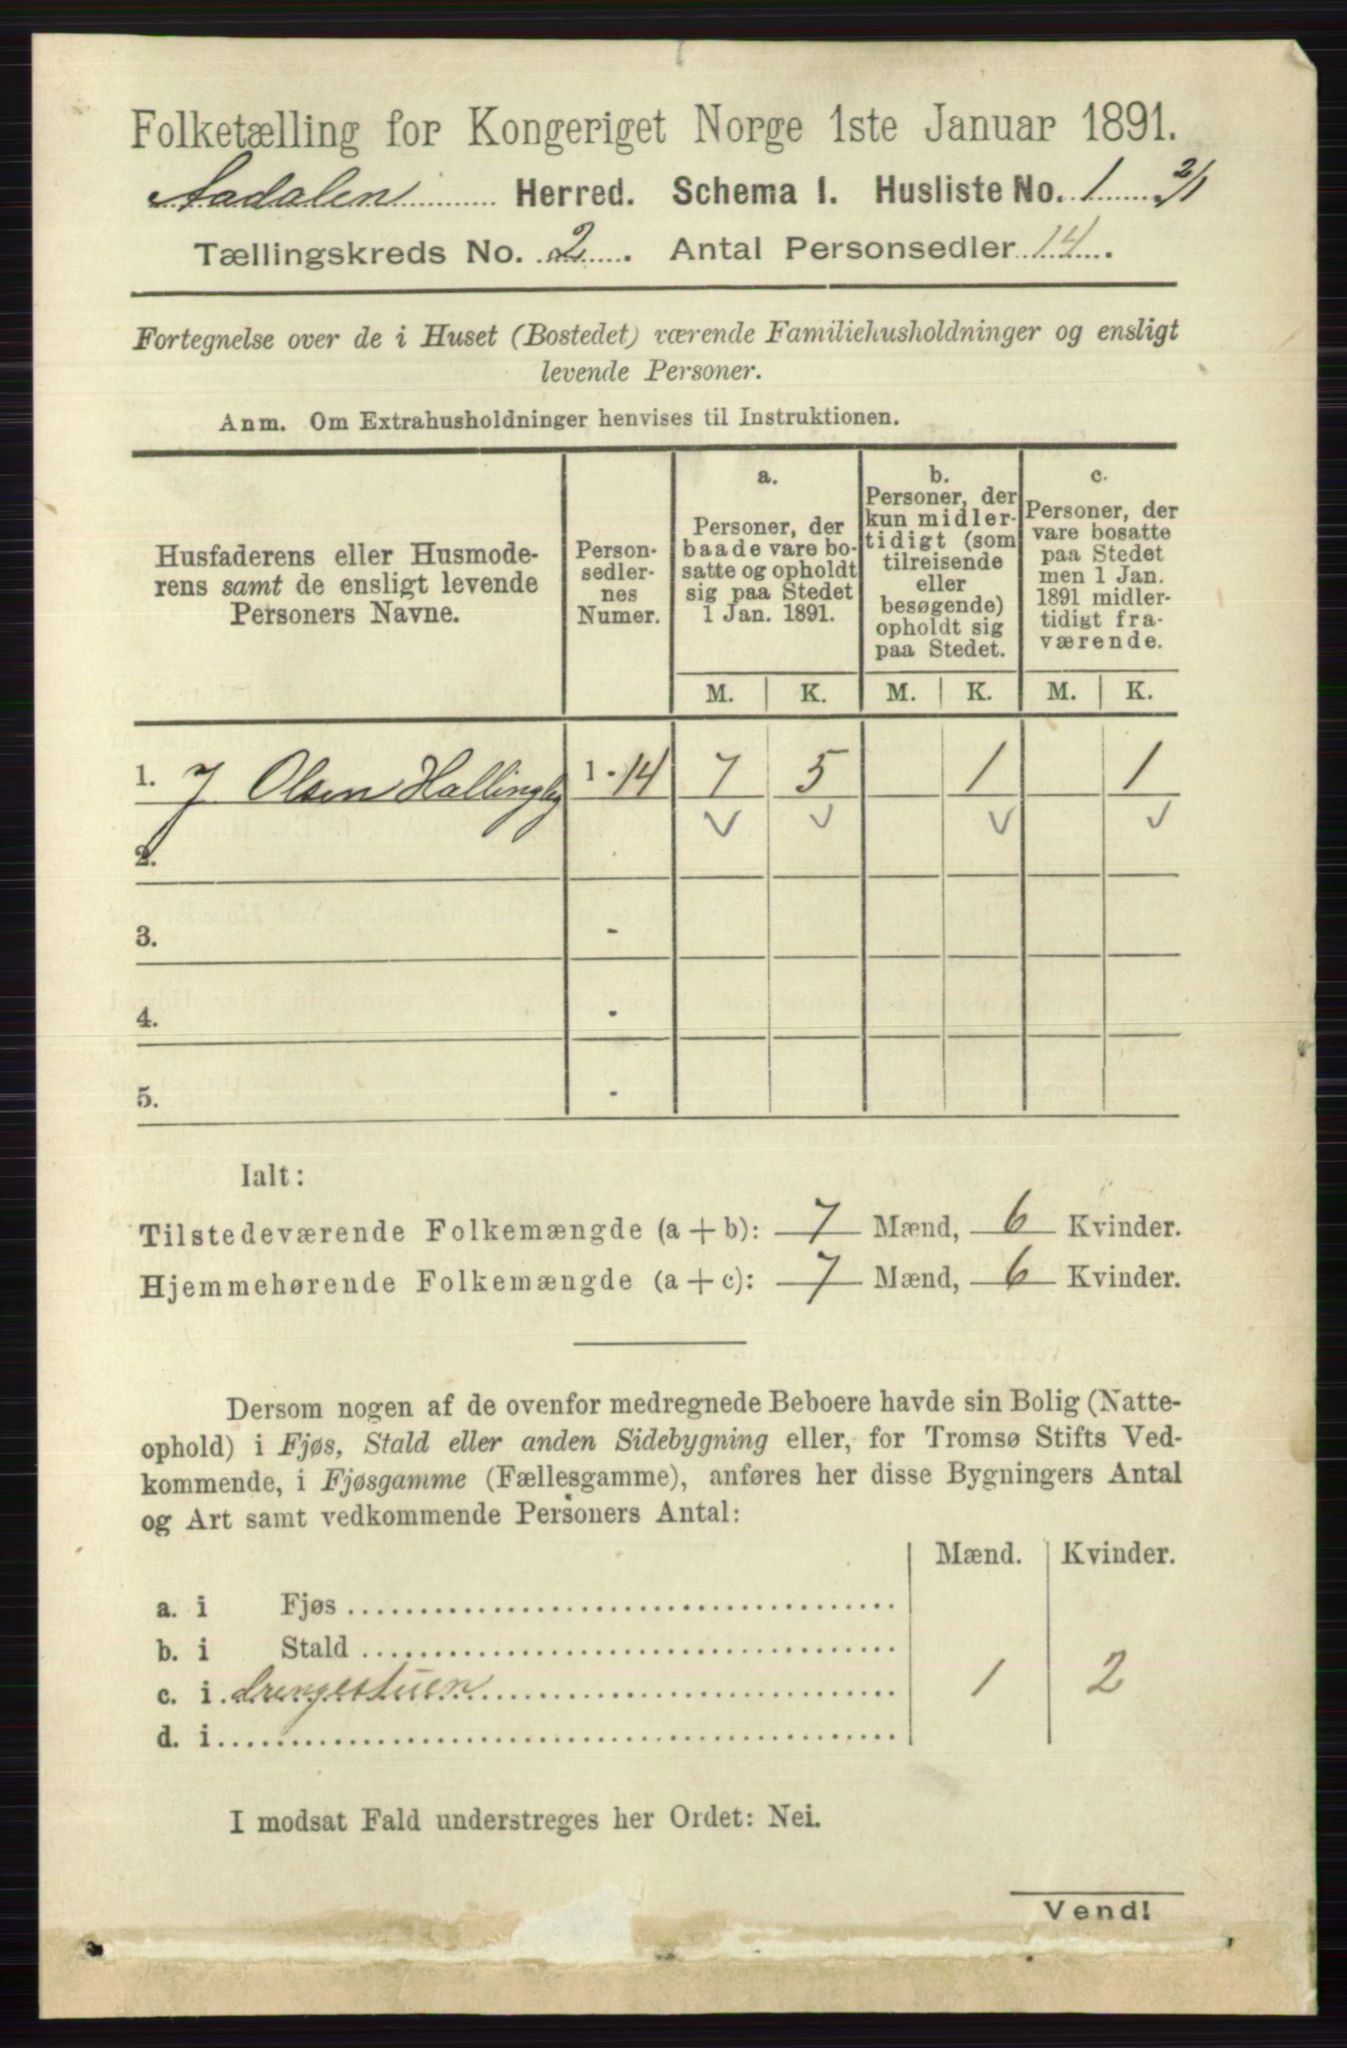 Folketælling for Kongeriget Norge 1ste Januar 1891.
Aadalen Herred. Schema 1. Husliste No. 1 2/1
Tællingskreds No. 2. Antal Personsedler 14.
Fortegnelse over de i Huset (Bostedet) værende Familiehusholdninger og ensligt
levende Personer.
Anm. Om Extrahusholdninger henvises til Instruktionen.
Husfaderens eller Husmode-
rens samt de ensligt levende
Personers Navne.
Person-
sedler-
nes
Numer.
a.
Personer, der
baade vare bo-
satte og opholdt
sig paa Stedet
1 Jan. 1891.
b.
Personer, der
kun midler-
tidigt (som
tilreisende
eller
besøgende)
opholdt sig
paa Stedet.
c.
Personer, der
vare bosatte
paa Stedet
men 1 Jan.
1891 midler-
tidigt fra-
værende.
M. K. M. K. M. K.
1. J Olsen Hallingby 1 - 14 7 5 1 1
2. -
3. -
4. -
5. -
Ialt:
Tilstedeværende Folkemængde (a + b): 7 Mænd, 6 Kvinder.
Hjemmehørende Folkemængde (a + c): 7 Mænd, 6 Kvinder.
Dersom nogen af de ovenfor medregnede Beboere havde sin Bolig (Natte-
ophold) i Fjøs, Stald eller anden Sidebygning eller, for Tromsø Stifts Ved-
kommende, i Fjøsgamme (Fællesgamme), anføres her disse Bygningers Antal
og Art samt vedkommende Personers Antal:
Mænd. Kvinder.
a. i Fjøs
b. i Stald
c. i drengestuen 1 2
d. i
I modsat Fald understreges her Ordet: Nei.
Vend!